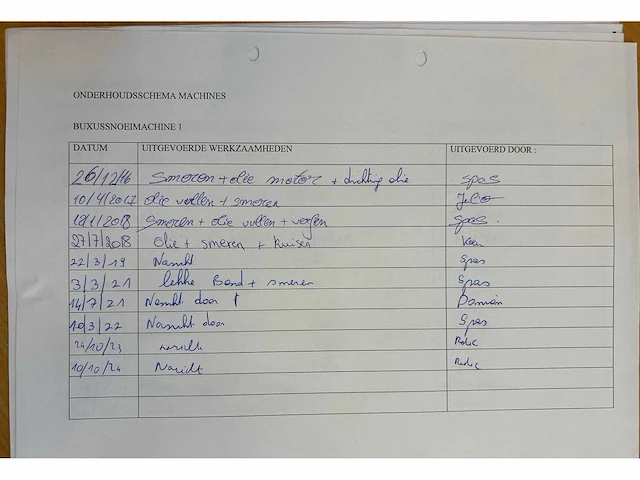 ONDERHOUDSSCHEMA MACHINES
BUXUSSNOEIMACHINE 1
DATUM UITGEVOERDE WERKZAAMHEDEN UITGEVOERD DOOR :
26/12/16 smeren + olie motor + dichting olie spas
10/4/2017 olie vullen + smeren
18/1/2018 smeren + olie vullen + verfen spas.
27/7/2018 olie + smeren + kuisen Koen
22/3/19 Spas
3/3/21 lekke Band + smeren Spas
14/7/21 door Damian
10/3/22 door Spas
24/10/23
10/10/24